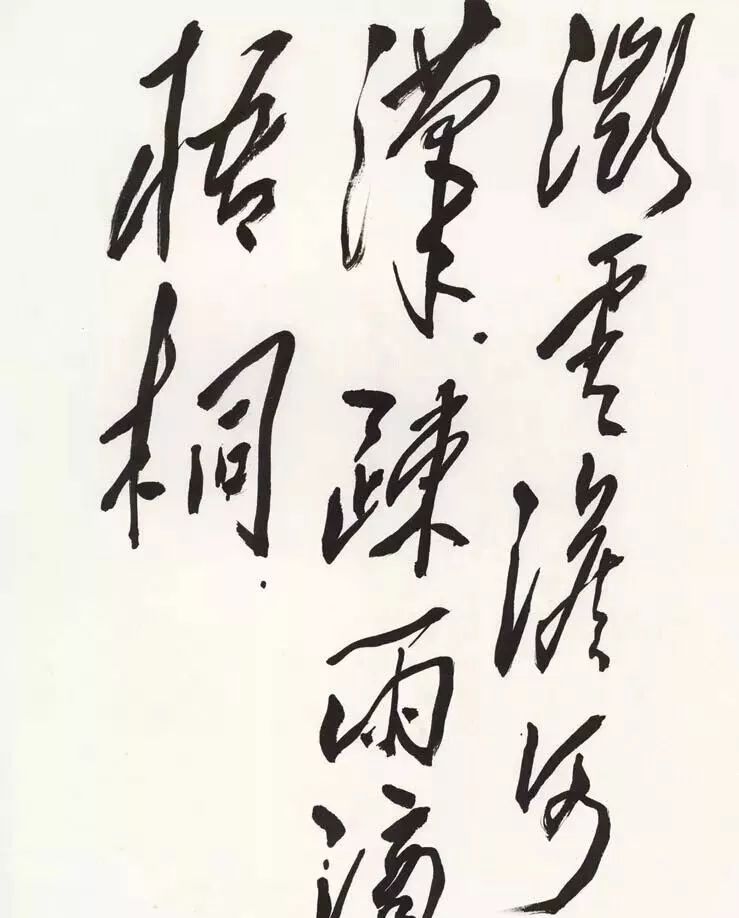 微雲澹河
漢.疎雨滴
梧桐.